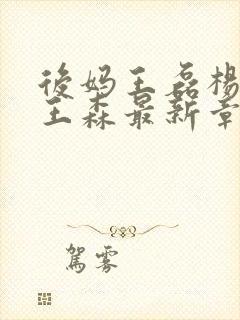 後妈王磊楊
王森最新章
駕雾